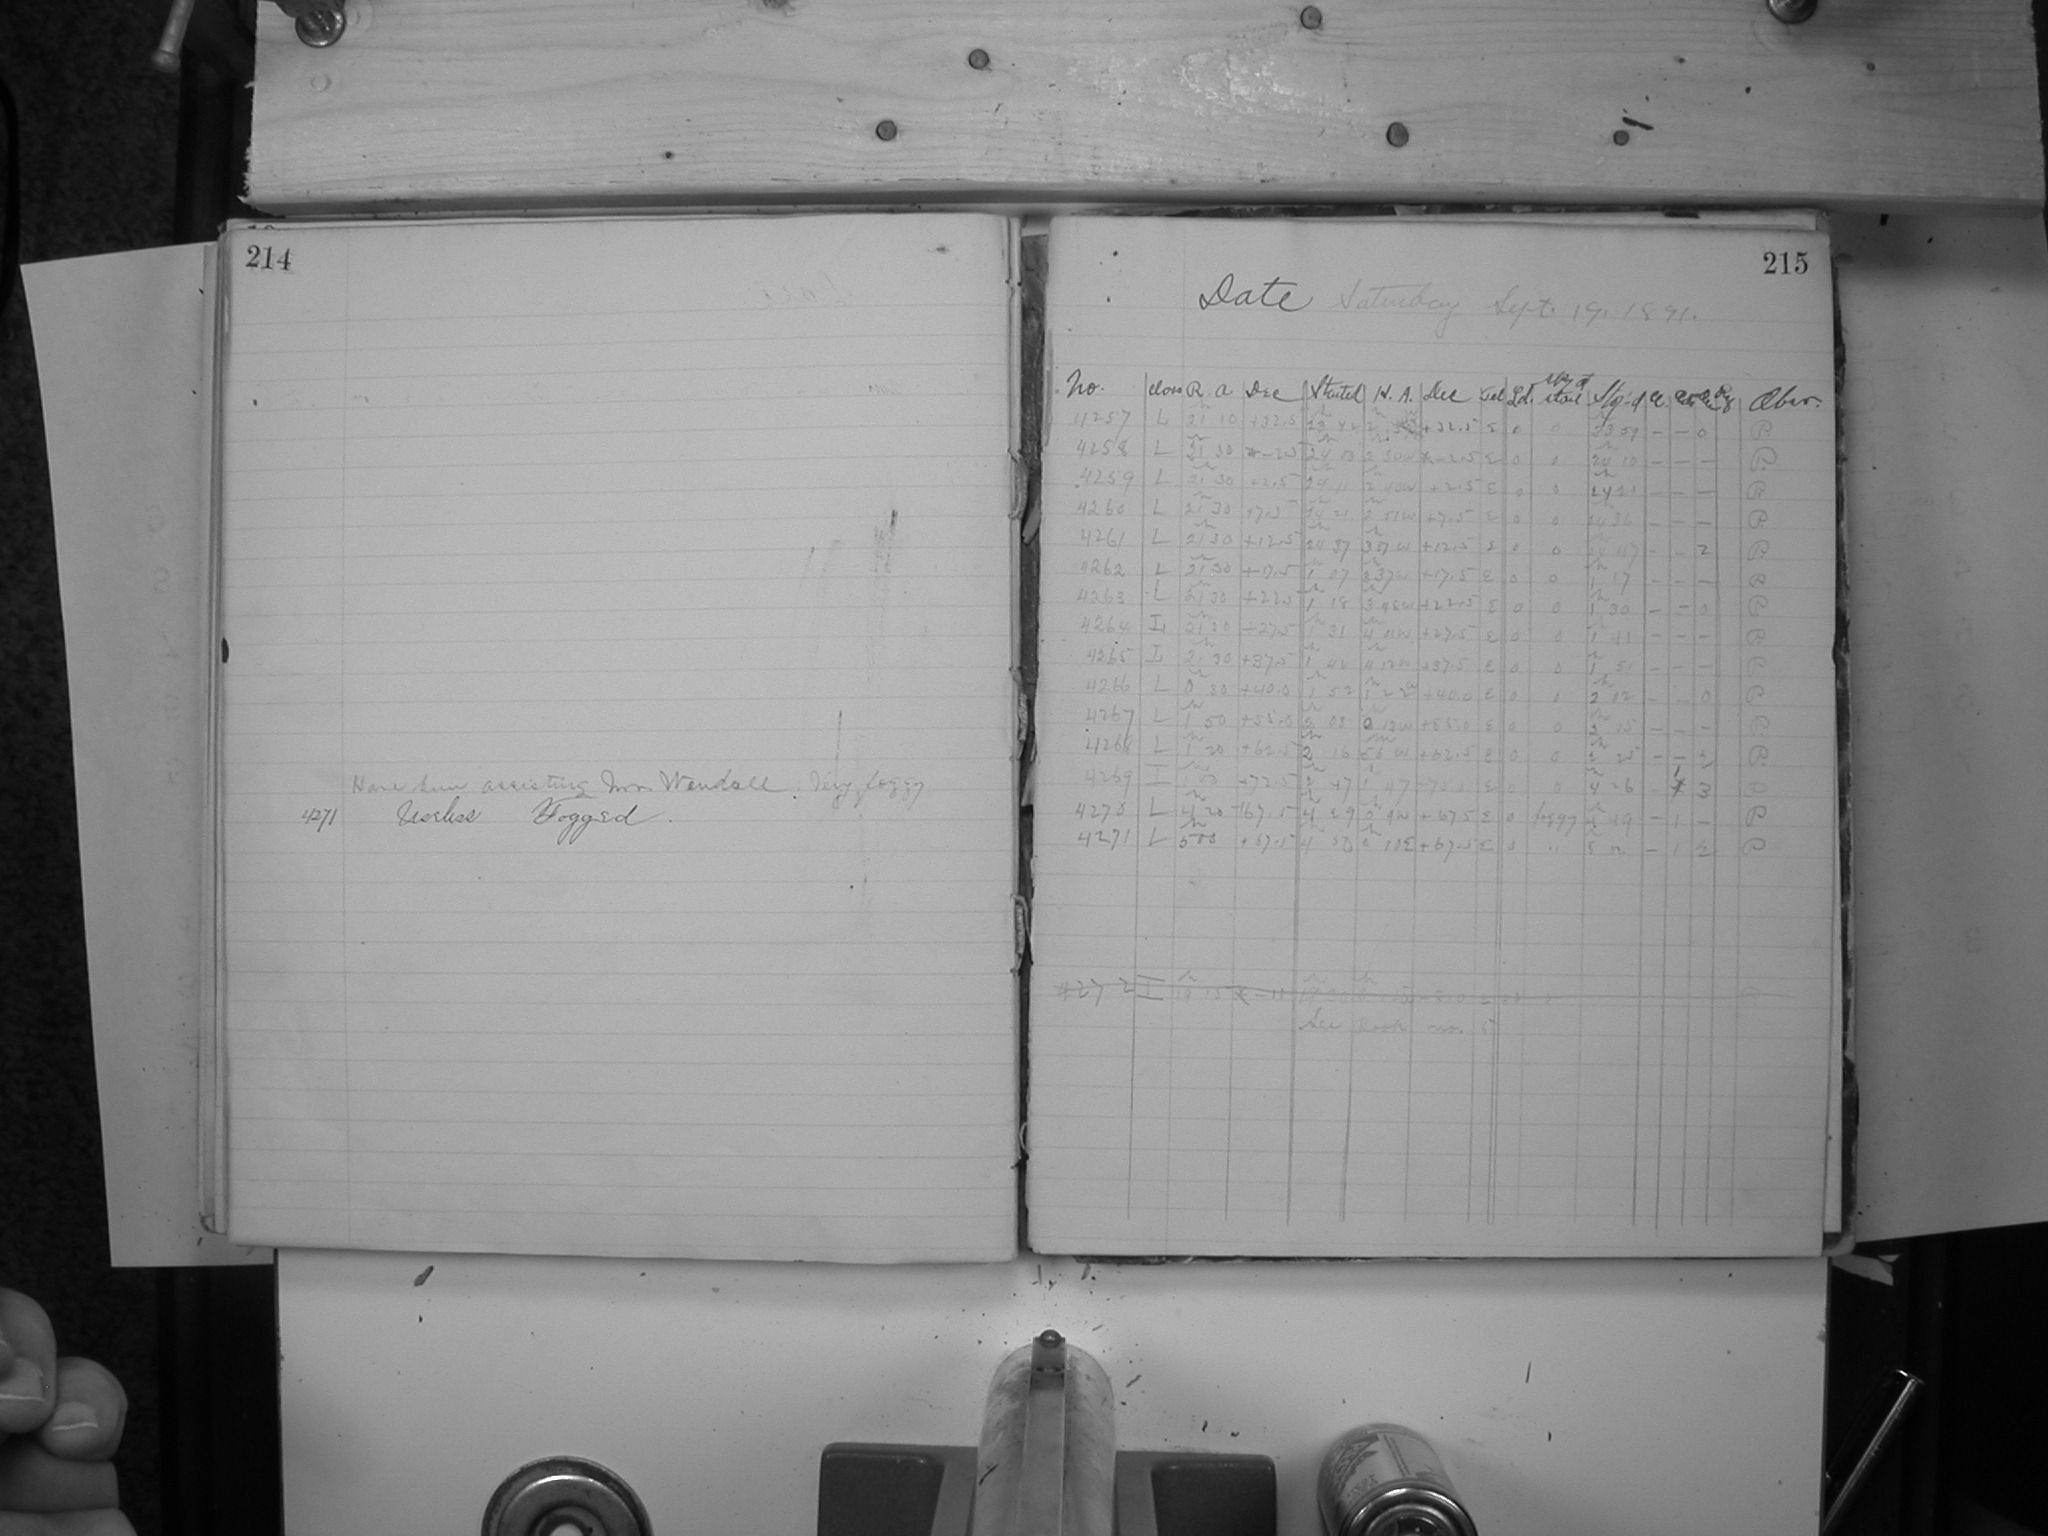 214
Have been assisting Mr. Wendell. Very foggy
4271 Useless Fogged.
215
Date Saturday Sept. 19, 1891.
No. class R. A. Dec Started H. A. Dec Obsr.
11257 L 21 10 +32.5 23 42 +32.5 E 0 0 23 59 – – 0 R
4258 L 21 30 E 0 0 24 10 – – – R
4259 L 21 30 +2.5 24 11 2 40W +2.5 E 0 0 24 21 – – – R
4260 L 21 30 +7.5 24 21 2 51W +7.5 E 0 0 24 36 – – – R
4261 L 21 30 +12.5 24 37 3 07W +12.5 E 0 0 24 47 – – 2 R
4262 L 21 30 +17.5 1 07 3 37W +17.5 E 0 0 1 17 – – – R
4263 L 21 30 +22.5 1 18 3 48W +22.5 E 0 0 1 30 – – 0 R
4264 I 21 30 +27.5 1 31 4 01W +27.5 E 0 0 1 41 – – – R
4265 I 21 30 +37.5 1 42 4 12W +37.5 E 0 0 1 51 – – – R
4266 L 0 30 +40.0 1 52 1 22W +40.0 E 0 0 2 02 – 0 R
4267 L 1 50 +55.0 2 03 0 13W +55.0 E 0 0 2 15 – – R
4268 L 1 20 +62.5 2 16 56W +62.5 E 0 0 2 25 – – R
4269 I +72.5 1 47 E 0 0 4 26 – 3 R
4270 L 4 20 +67.5 4 29 0 9W +67.5 E 0 foggy 4 49 – 1 – R
4271 L 5 00 +67.5 4 50 0 10E +67.5 E 0 " 5 02 – 1 R
4272 I
See Book no. 5